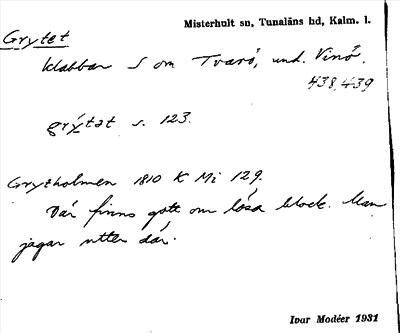 Misterhult sn, Tunaläns hd, Kalm. l.
Grytet
klabbar S om Tvarö, und. Vinö.
438, 439
grýtət s. 123.
Grytholmen 1810 K Mi 129.
Där finns gott om lösa block. Man
jagar utter där.
Ivar Modéer 1931